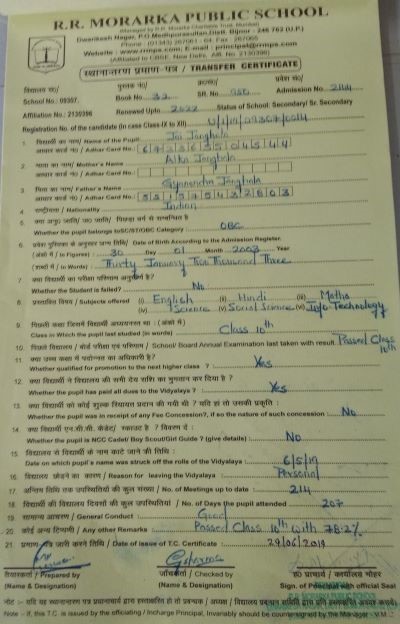 R.R. MORARKA PUBLIC SCHOOL
(Managed by R.R. Morarka Charitable Trust, Mumbai)
Dwarikesh Nagar, P.O. Medhpurasultan, Distt. Bijnor - 246 762 (U.P.)
Phone : (01343) 267061 - 64, Fax : 267065
Website : www.rrmps.com; E-mail : principal@rrmps.com
(Affiliated to CBSE, New Delhi, Aff. No. 2130396)
स्थानान्तरण प्रमाण-पत्र / TRANSFER CERTIFICATE
विद्यालय सं०/ पुस्तक सं०/ क्र०सं०/ प्रवेश सं०/
School No : 09307. Book No 32 SR. No. 950 Admission No. 2144
Affiliation No.: 2130396 Renewed Upto 2022 Status of School: Secondary/ Sr. Secondary
Registration No. of the candidate (in case Class-IX to XII)
1. विद्यार्थी का नाम/ Name of the Pupil Jai Janghala
आधार कार्ड नं० / Adhar Card No.
2. माता का नाम/ Mother's Name Alka Janghala
आधार कार्ड नं० / Adhar Card No.
3. पिता का नाम/ Father's Name Janghala
आधार कार्ड नं० / Adhar Card No.
4. राष्ट्रीयता / Nationality Indian
5. क्या अनु० जाति/ ज०जाति/ पिछड़ा वर्ग से सम्बन्धित है
Whether the pupil belongs toSC/ST/OBC Category : OBC
6. प्रवेश पुस्तिका के अनुसार जन्म तिथि/ Date of Birth According to the Admission Register.
(अंकों में) / to Figures) : 30 Day 01 Month 2003 Year
(शब्दों में) / to Words) : Thirty January Two Thousand Three
7. क्या विद्यार्थी का परीक्षा परिणाम अनुत्तीर्ण है?
Whether the Student is failed? No
8. प्रस्तावित विषय / Subjects offered (i) English (ii) Hindi (iii) Maths
(iv) Science (v) Social Science (vi) Info-Technology
9. पिछली कक्षा जिसमें विद्यार्थी अध्ययनरत था : (अंकों में)
Class in Which the pupil last studied (in words) Class 10th
10. पिछले विद्यालय / बोर्ड परीक्षा एवं परिणाम / School/ Board Annual Examination last taken with result Passed Class 10th
11. क्या उच्च कक्षा में पदोन्नत का अधिकारी है?
Whether qualified for promotion to the next higher class ? Yes
12. क्या विद्यार्थी ने विद्यालय की सभी देय राशि का भुगतान कर दिया है ?
Whether the pupil has paid all dues to the Vidyalaya ? Yes
13. क्या विद्यार्थी को कोई शुल्क रियायत प्रदान की गयी थी ? यदि हां तो उसकी प्रकृति :
Whether the pupil was in receipt of any Fee Concession?, if so the nature of such concession : No
14. क्या विद्यार्थी एन.सी.सी. कैडेट/ स्काउट है ? विवरण दें :
Whether the pupil is NCC Cadet/ Boy Scout/Girl Guide ? (give details) : No
15. विद्यालय से विद्यार्थी के नाम काटे जाने की तिथि :
Date on which pupil's name was struck off the rolls of the Vidyalaya 6/5/19
16. विद्यालय छोड़ने का कारण / Reason for leaving the Vidyalaya Personal
17. अन्तिम तिथि तक उपस्थितियों की कुल संख्या / No. of Meetings up to date 214
18. विद्यार्थी की विद्यालय दिवसों की कुल उपस्थितियां / No. of Days the pupil attended 207
19. सामान्य आचरण / General Conduct Good
20. कोई अन्य टिप्पणी / Any other Remarks Passed Class 10th with 78.2%
21. प्रमाण पत्र जारी करने तिथि / Date of issue of T.C. Certificate 29/06/2019
तैयारकर्ता / Prepared by जाँचकर्ता / Checked by ह० प्राचार्य / कार्यालय मोहर
(Name & Designation) (Name & Designation) Sign. of Principal with official Seal
Note :- If this T.C. is issued by the officiating / Incharge Principal, Invariably should be countersigned by the Manager - V.M.C.